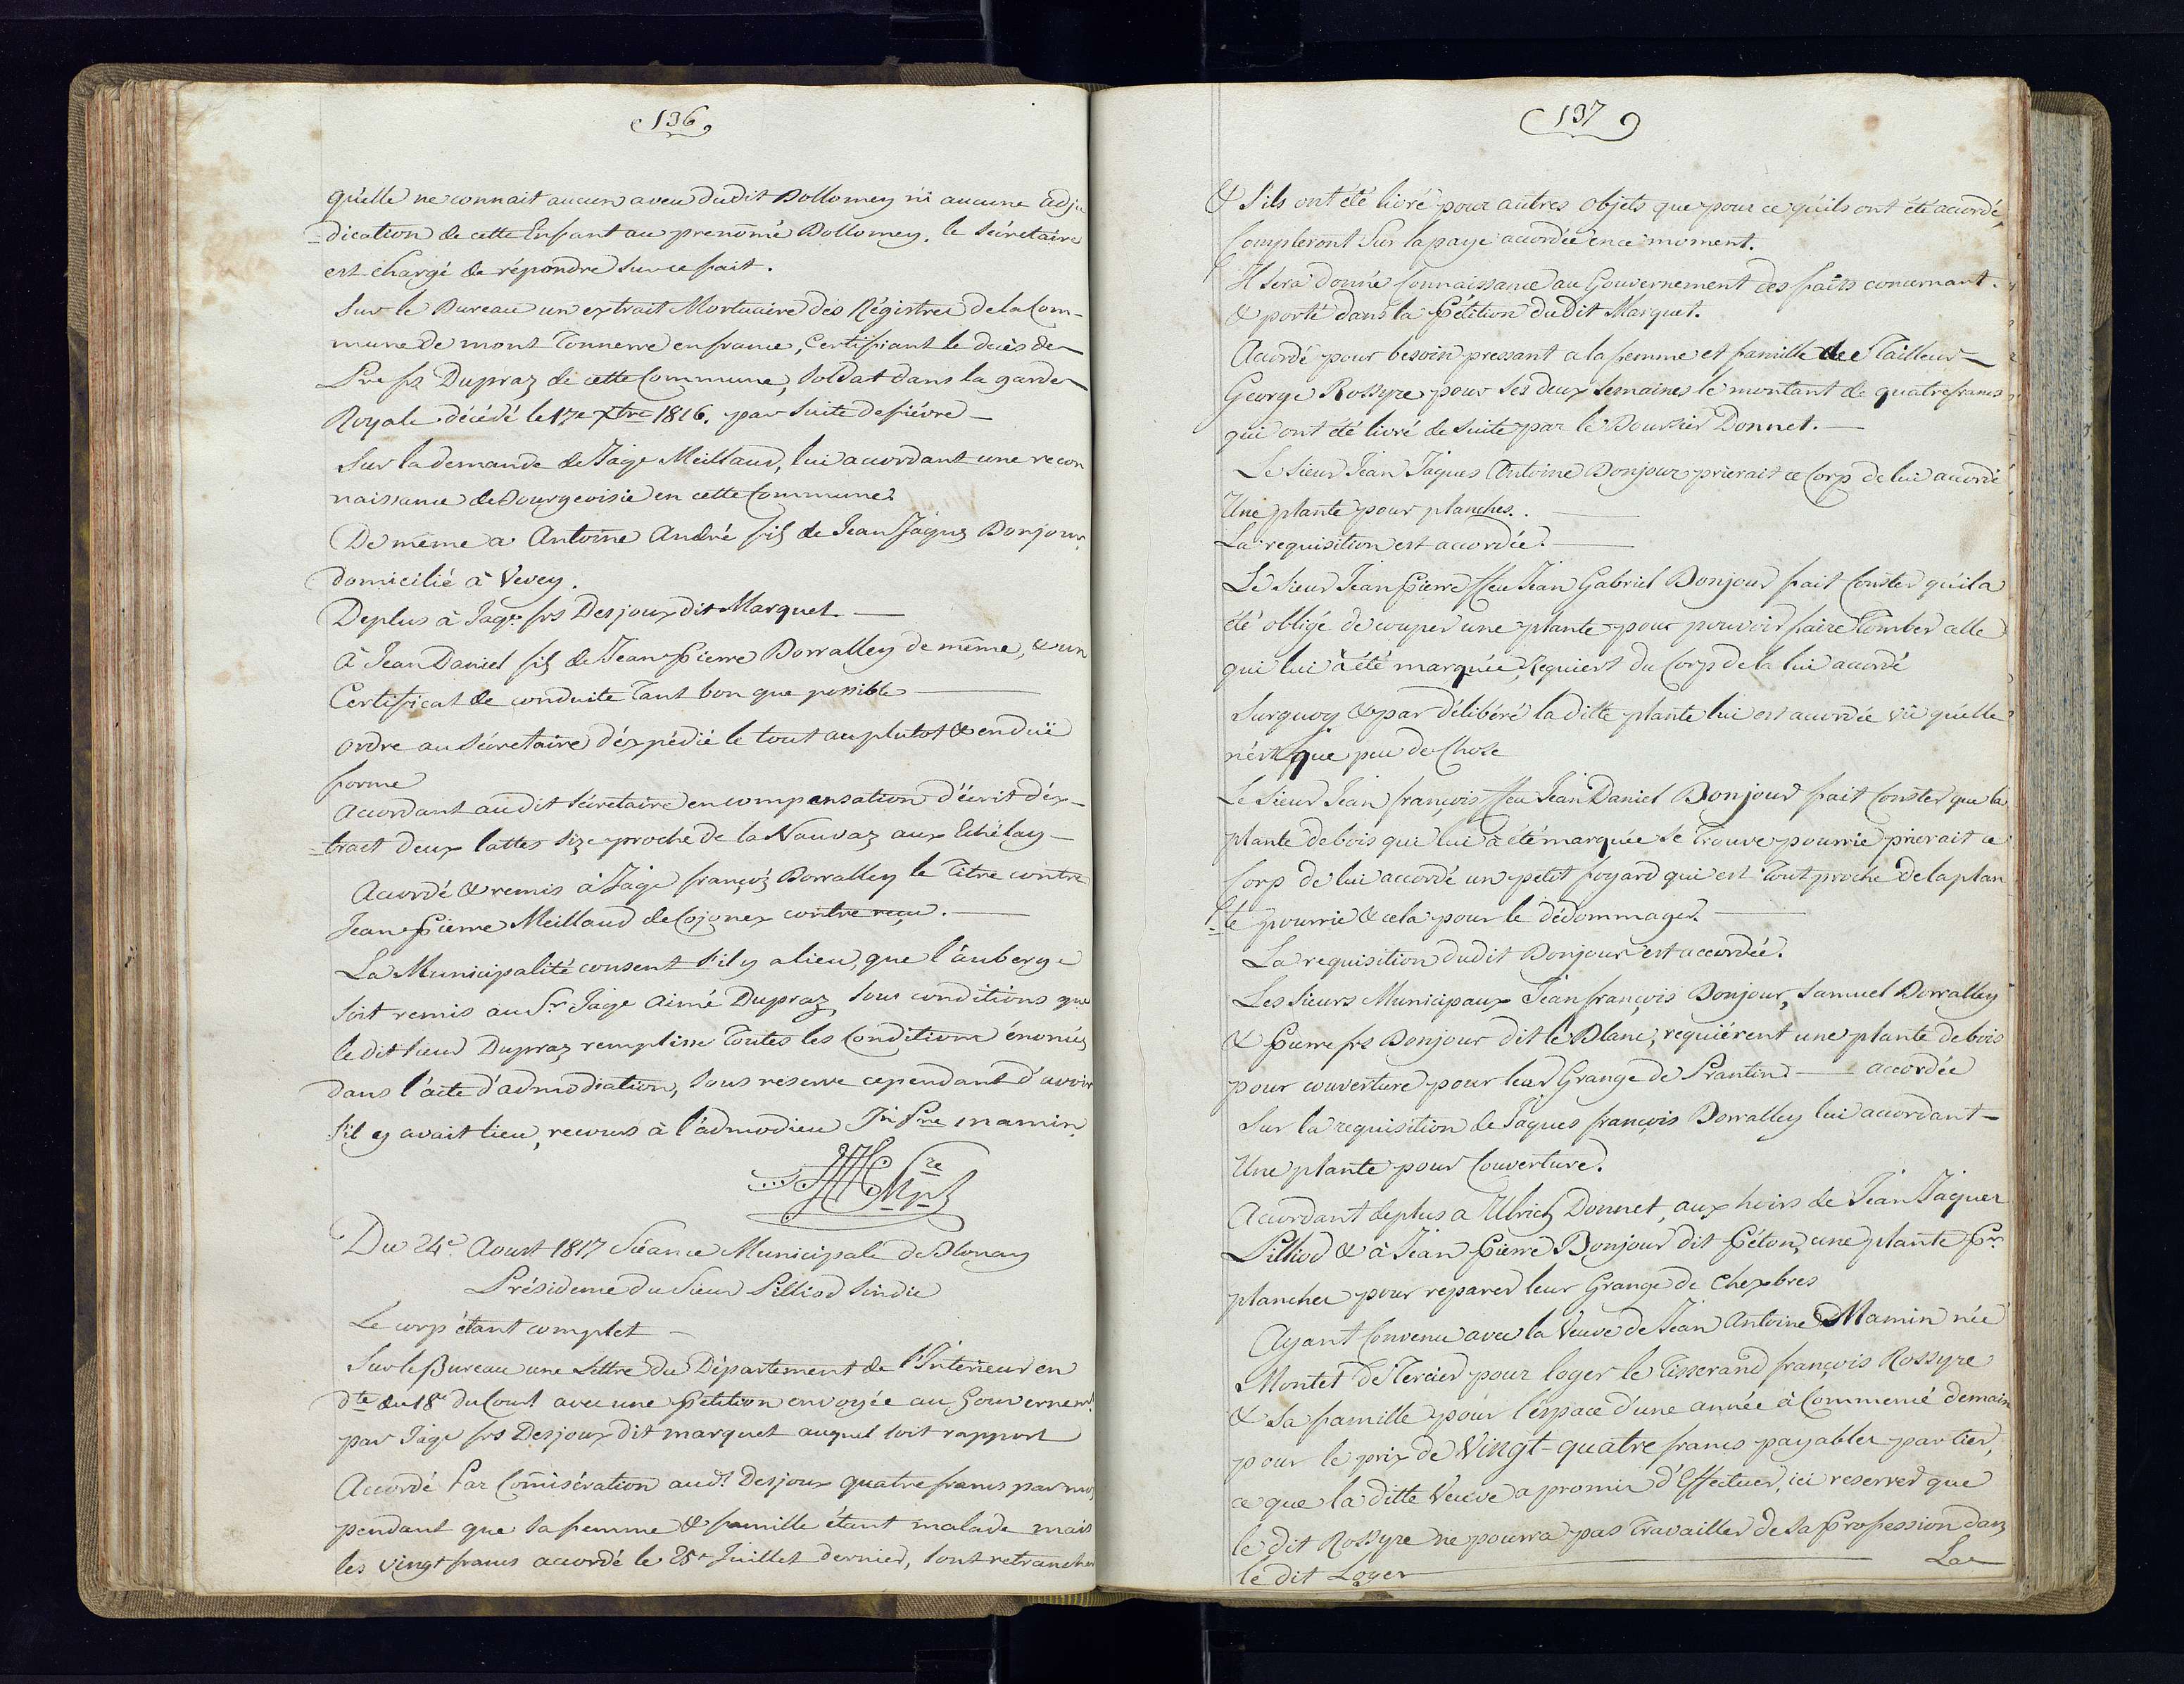 136
qu'elle ne connait aucun aveu dudit Dollomey ni aucune adju
-dication de cette Enfant au prenõmé Dollomey. le sécretaire
est chargé de répondre sur ce fait.
Sur le Bureau un extrait Mortuaire des Régistres de la Com-
mune de mont Tonnerre en france, Certifiant le decès de
Pre frs Dupraz de cette Commune, Soldat dans la garde
Royale décédé le 17e Xbre 1816. par suite de fiévre
Sur la demande de Jaqe Meillaud, lui accordant une recon
naissance de Bourgeoisie en cette Commune
De même a Antoine André fils de Jean Jaques Bonjour,
domicilié à Vevey.
Deplus à Jaqe frs Desjoux dit Marquet.
à Jean Daniel fils de Jean Pierre Dorralley de même, & un
Certificat de conduite Tant bon que possible
ordre au sécretaire d'éxpédié le tout au plutot & en duë
forme
Acordant audit sécretaire en compensation d'écrit d'éx-
-trait deux lattes size proche de la Nauvaz aux Echélay
Acordé & remis à Jaqe françois Dorralley le Titre contre
Jean Pierre Meillaud de Cojonex contre reçu.
La Municipalité consent s'il y a lieu, que l'auberge
soit remis au Sr Jaqe Aimé Dupraz, sous conditions que
le dit sieur Dupraz remplisse Toutes les Conditions énoncés
dans l'acte d'admodiation, Sous reserve cependant d'avoir
S'il y avait lieu, recours à l'admodieu Jn Pre mamin.
Du 24e. Aoust 1817 Séance Municipale de Blonay
Présidence du Sieur Pilliod Sindic
Le corp étant complet
Sur le Bureau une Lettre du Département de l'Interieur en
dte du 18e du Court avec une Petition envoyée au Gouvernemt
par Jaqe frs Desjoux dit marquet auquel soit rapport
Acordé Par Comisération audt Desjoux quatre francs par mois
pendant que sa femme & famille étant malade mais
les vingt francs accordé le 25e Juillet dernier, Sont retranchés
137
& S'ils ont été livré pour autres objets que pour ce qu'ils ont été acordé,
Compteront Sur la paye accordée en ce moment.
Il sera donné Connaissance au Gouvernement des faits concernant
& porté dans la Pétition dudit Marquet.
Acordé pour besoin pressant a la femme et famille de Tailleur
George Rossyre pour ses deux Semaines le montant de quatre francs
qui ont été livré de suite par le Boursier Donnet.
Le Sieur Jean Jaques Antoine Bonjour prierait ce Corp de lui acordé
Une plante pour planches.
La requisition est accordée.
Le Sieur Jean Pierre ffeu Jean Gabriel Bonjour fait Conster qu'il a
été obligé de couper une plante pour pouvoir faire Tomber celle
qui lui à été marquée, Requiert du Corp de la lui acordé
Surquoy & par délibéré la ditte plante lui est acordée vû qu'elle
n'est que peu de Chose
Le Sieur Jean françois ffeu Jean Daniel Bonjour fait Conster que la
plante de bois qui lui à été marquée se Trouve pourrie prierait ce
Corp de lui accordé un petit foyard qui est Tout proche de la plan
-te pourrie & cela pour le dédommager.
La requisition dudit Bonjour est accordée.
Les Sieurs Municipaux Jean françois Bonjour, Samuel Dorralley
& Pierre frs Bonjour dit le Blanc, requiérent une plante de bois
pour couverture pour leur Grange de Prantin accordée
Sur la requisition de Jaques françois Dorralley lui acordant
Une plante pour Couverture.
Acordant deplus a Ulrich Donnet, aux hoirs de Jean Jaques
Pilliod & à Jean Pierre Bonjour dit Péton, une plante Pr
plancher pour reparer leur Grange de Chexbres
Ayant Convenu avec la Veuve de Jean Antoine Mamin née
Montet de Tercier pour loger le Tisserand françois Rossyre
& Sa famille pour l'espace d'une année à Commencé demain
pour le prix de Vingt-quatre francs payables par tier,
ce que la ditte Veuve a promis d'Effectuer, ici reserver que
le dit Rossyre ne pourra pas Travailler de Sa Profession dans
le dit Loger
La